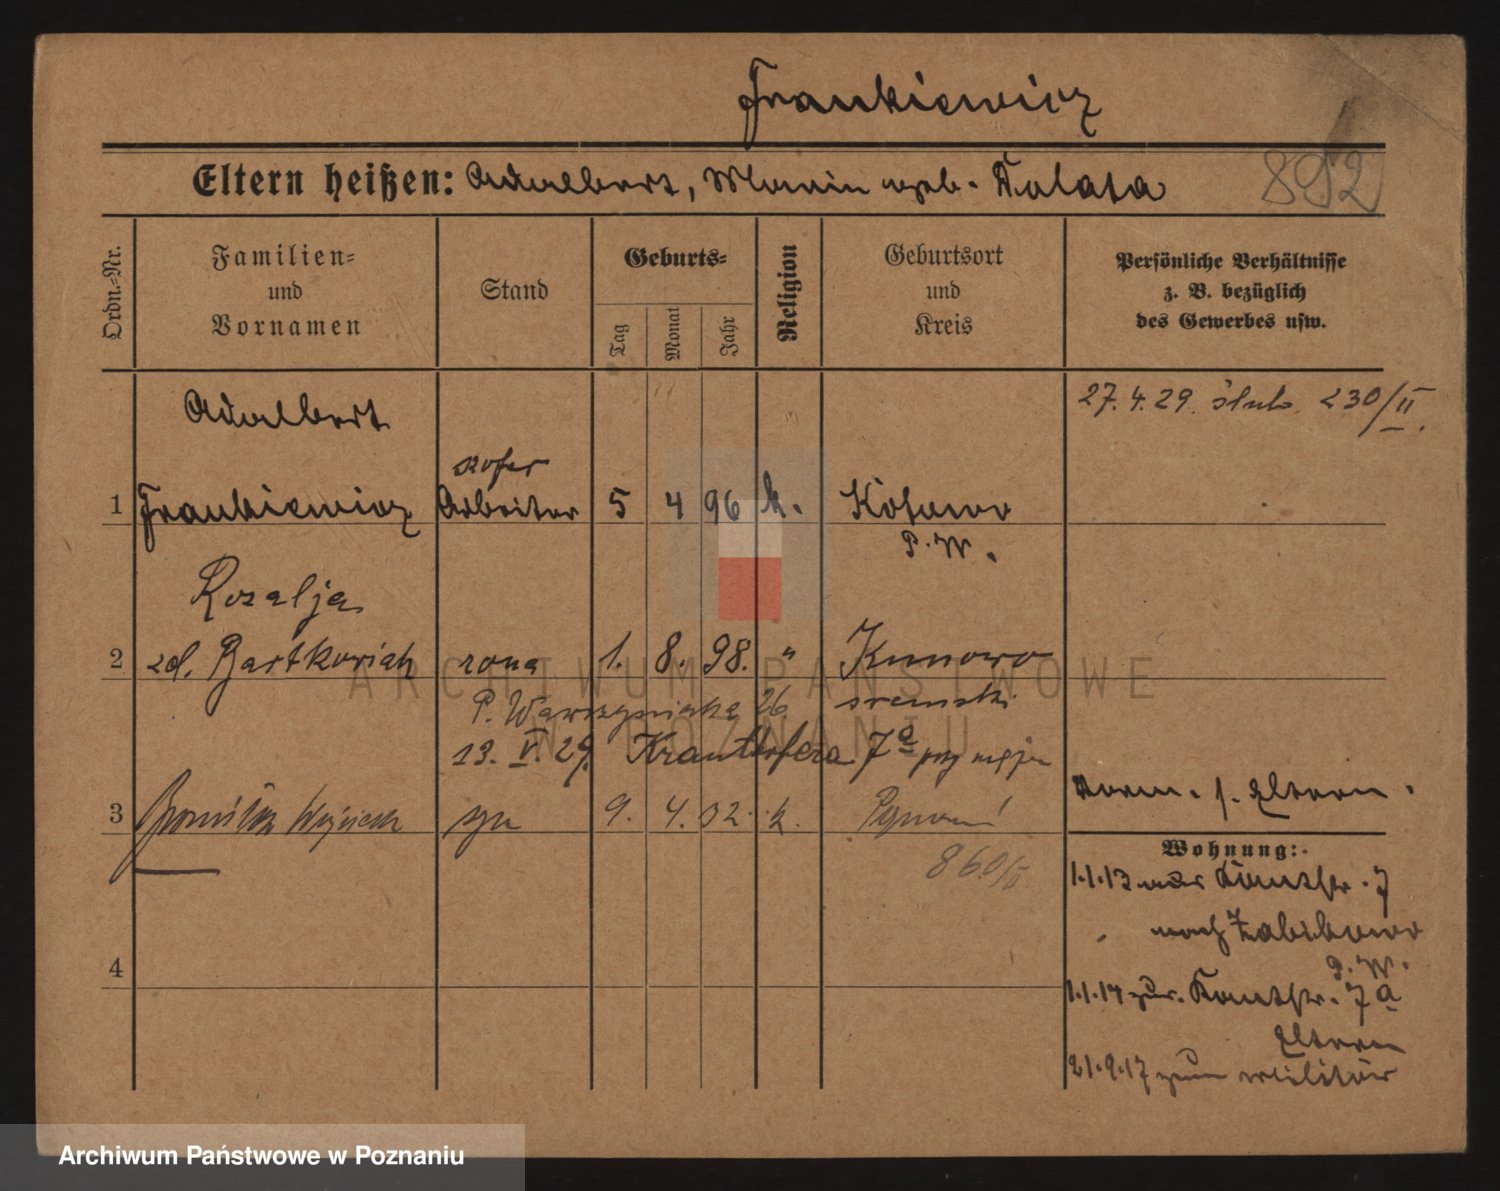 Frankiewicz
Eltern heißen: Adalbert, Marie geb. Kalata
892
Ordn.-Nr.
Familien-
und
Vornamen
Stand
Geburts-
Tag
Monat
Jahr
Religion
Geburtsort
und
Kreis
Persönliche Verhältnisse
z. B. bezüglich
des Gewerbes usw.
Adalbert
27.4.29. ślub. 230/II.
szofer
1 Frankiewicz Arbeiter 5 4 96 k. Kotowo
P. W.
Rozalja
2 zd. Bartkowiak żona 1. 8. 98. " Kunowo
P. Warszyńska 26 śremski
13. V. 29. Krauthofera 7a przy mężu
Korn. s. Eltern.
3 Wojciech syn 9. 4. 32. k. Poznań
860/II
Wohnung:
1.1.13 Kantstr. 7
nach Zabikowo
P. W.
4
1.1.14 zur. Kantstr. 7a
Eltern
21.9.17 zum Militär
ARCHIWUM PAŃSTWOWE
W POZNANIU
Archiwum Państwowe w Poznaniu